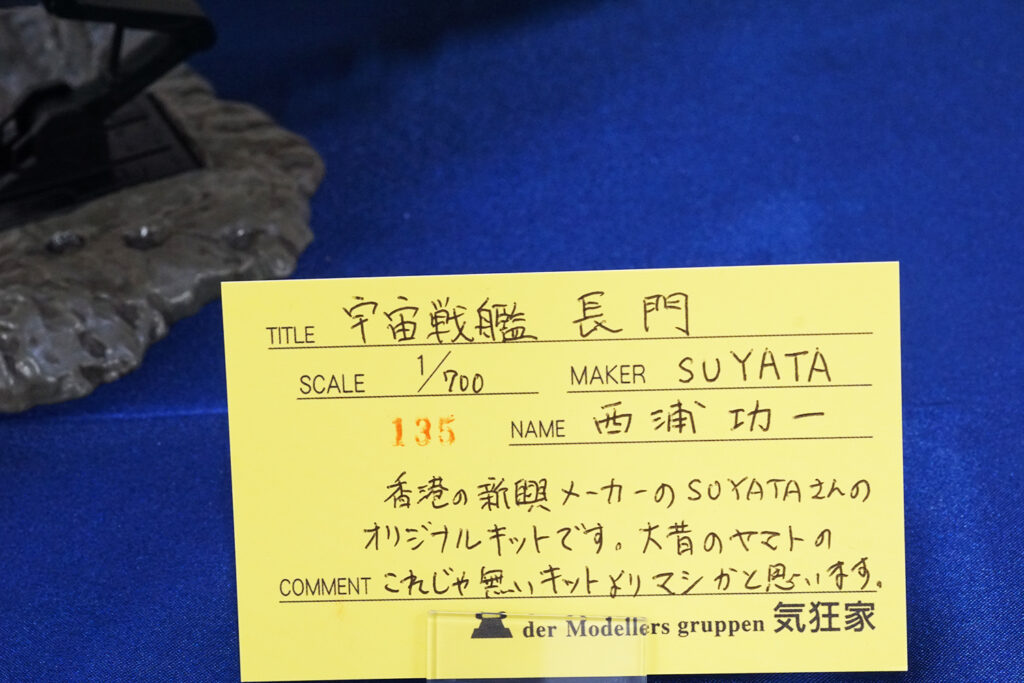 TITLE 宇宙戦艦 長門
SCALE 1/700 MAKER SUYATA
135 NAME 西浦 功一
香港の新興メーカーのSUYATAさんの
オリジナルキットです。大昔のヤマトの
COMMENT これじゃ無いキットよりマシかと思います。
der Modellers gruppen 気狂家